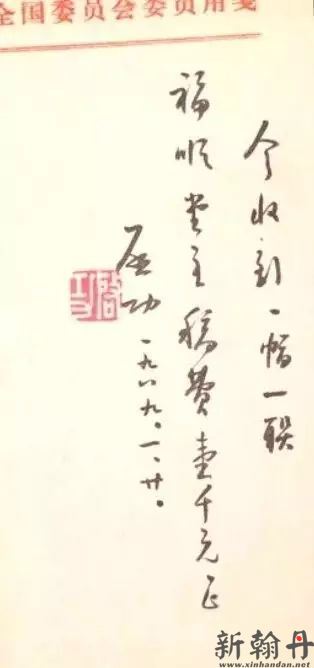 全国委员会委员用笺
今收到一幅一联
福顺堂主稿费壹千元正
启功 一九八九.一.廿.
启功
新翰丹
www.xinhandan.net